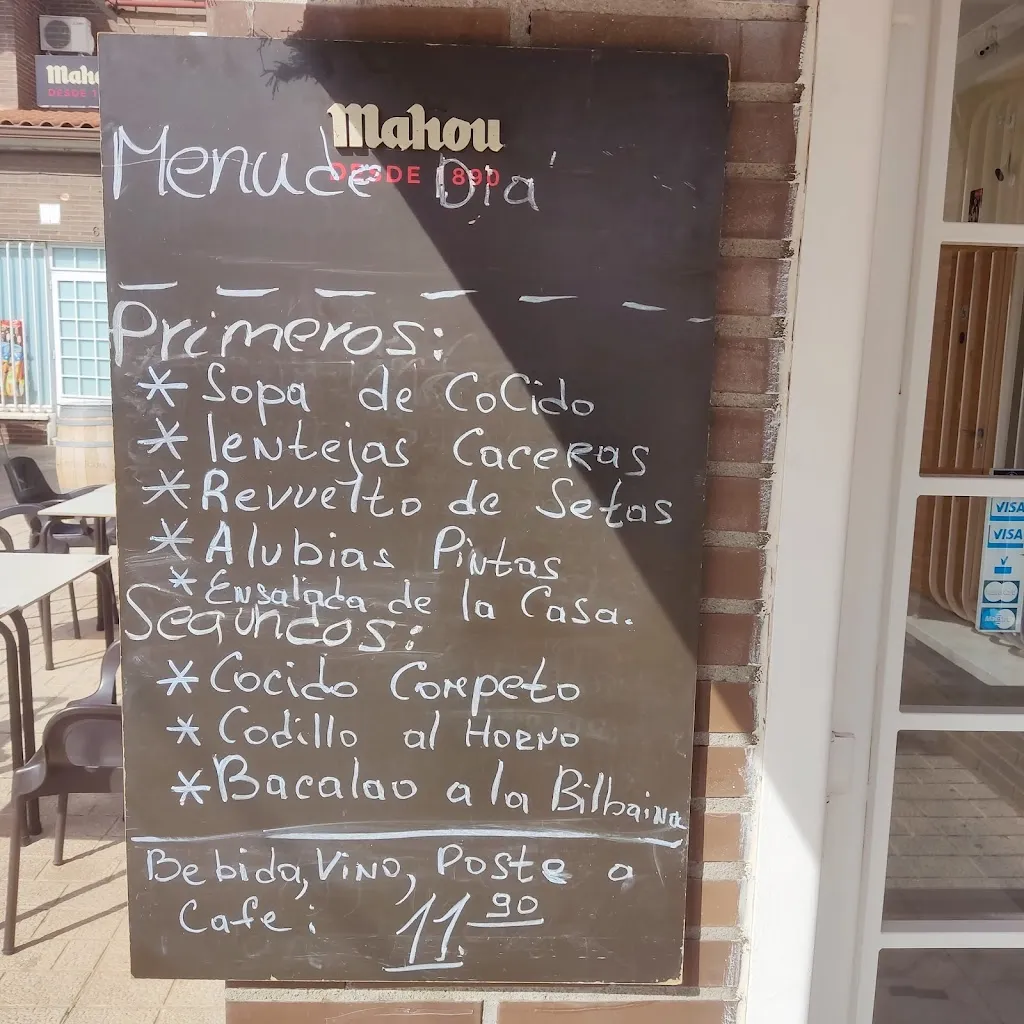 Mahou
DESDE 1
Mahou
DESDE 1890
Menu de Dia
Primeros:
* Sopa de Cocido
* lentejas Caceras
* Revvuelto de Setas
* Alubias Pintas
* Ensalada de la Casa.
Segundos:
* Cocido Competo
* Codillo al Horno
* Bacalao a la Bilbaina
Bebida, Vino, Poste o
Cafe: 11.90
VISA
VISA